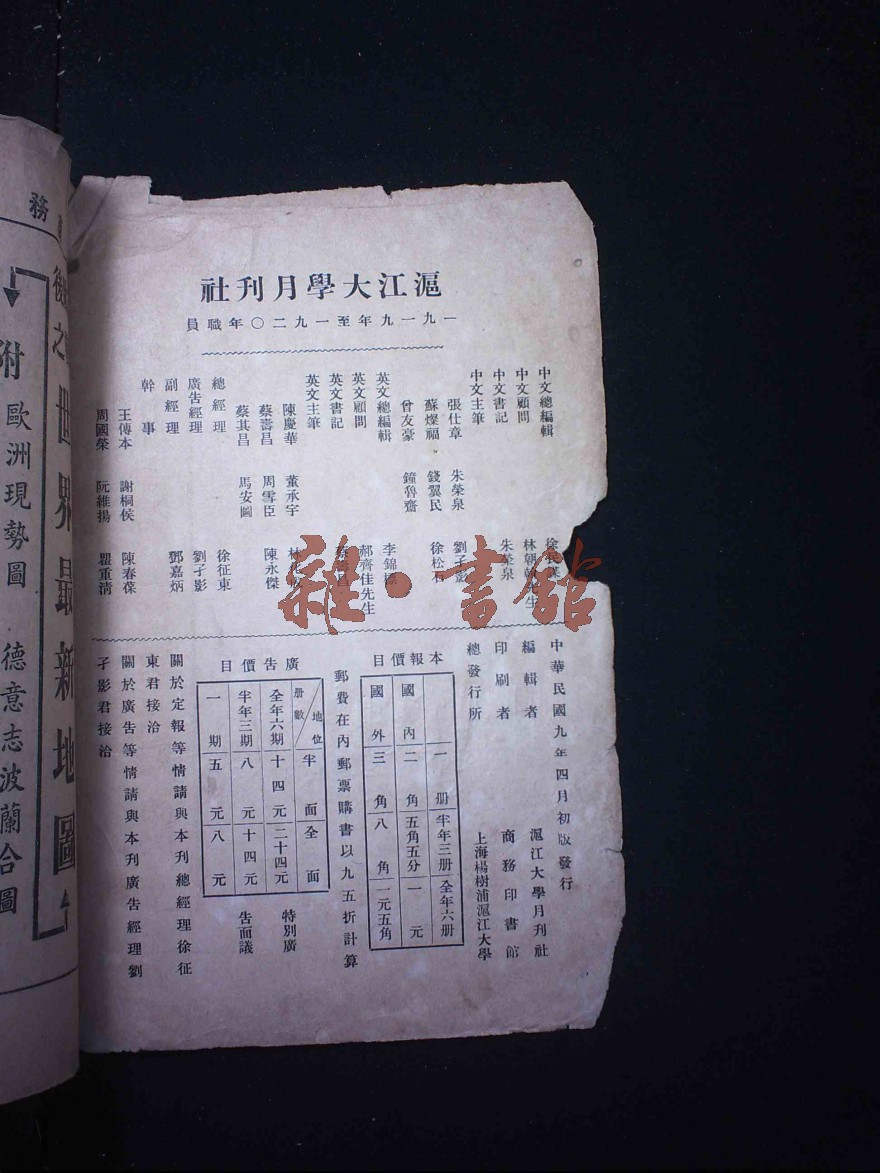 滬江大學月刊社
一九一九年至一九二〇年職員
中文總編輯
中文顧問 林朝翰先生
中文書記 朱榮泉
中文主筆
張仕章 朱榮泉 劉子影
蘇燦福 錢翼民 徐松石
曾友豪 鐘魯齋
英文總編輯 李錦標
英文顧問 郝齊佳先生
英文書記
英文主筆
陳慶華 董承宇
蔡壽昌 周雪臣 陳永傑
蔡其昌 馬安圖
總經理 徐征東
廣告經理 劉孑影
副經理 鄧嘉炳
幹事
王傳本 謝桐侯 陳春葆
周國榮 阮維揚 瞿重清
中華民國九年四月初版發行
編輯者 滬江大學月刊社
印刷者 商務印書館
總發行所 上海楊樹浦滬江大學
本報價目
一册 半年三册 全年六册
國內 二角 五角五分 一元
國外 三角 八角 一元五角
郵費在內郵票購書以九五折計算
廣告價目
地位 册數 半面 全面
全年六期 十四元 二十四元
半年三期 八元 十四元
一期 五元 八元
特別廣
告面議
關於定報等情請與本刊總經理徐征
東君接洽
關於廣告等情請與本刊廣告經理劉
孑影君接洽
務
世界最新地圖
附
歐洲現勢圖
德意志波蘭合圖
雜·書館